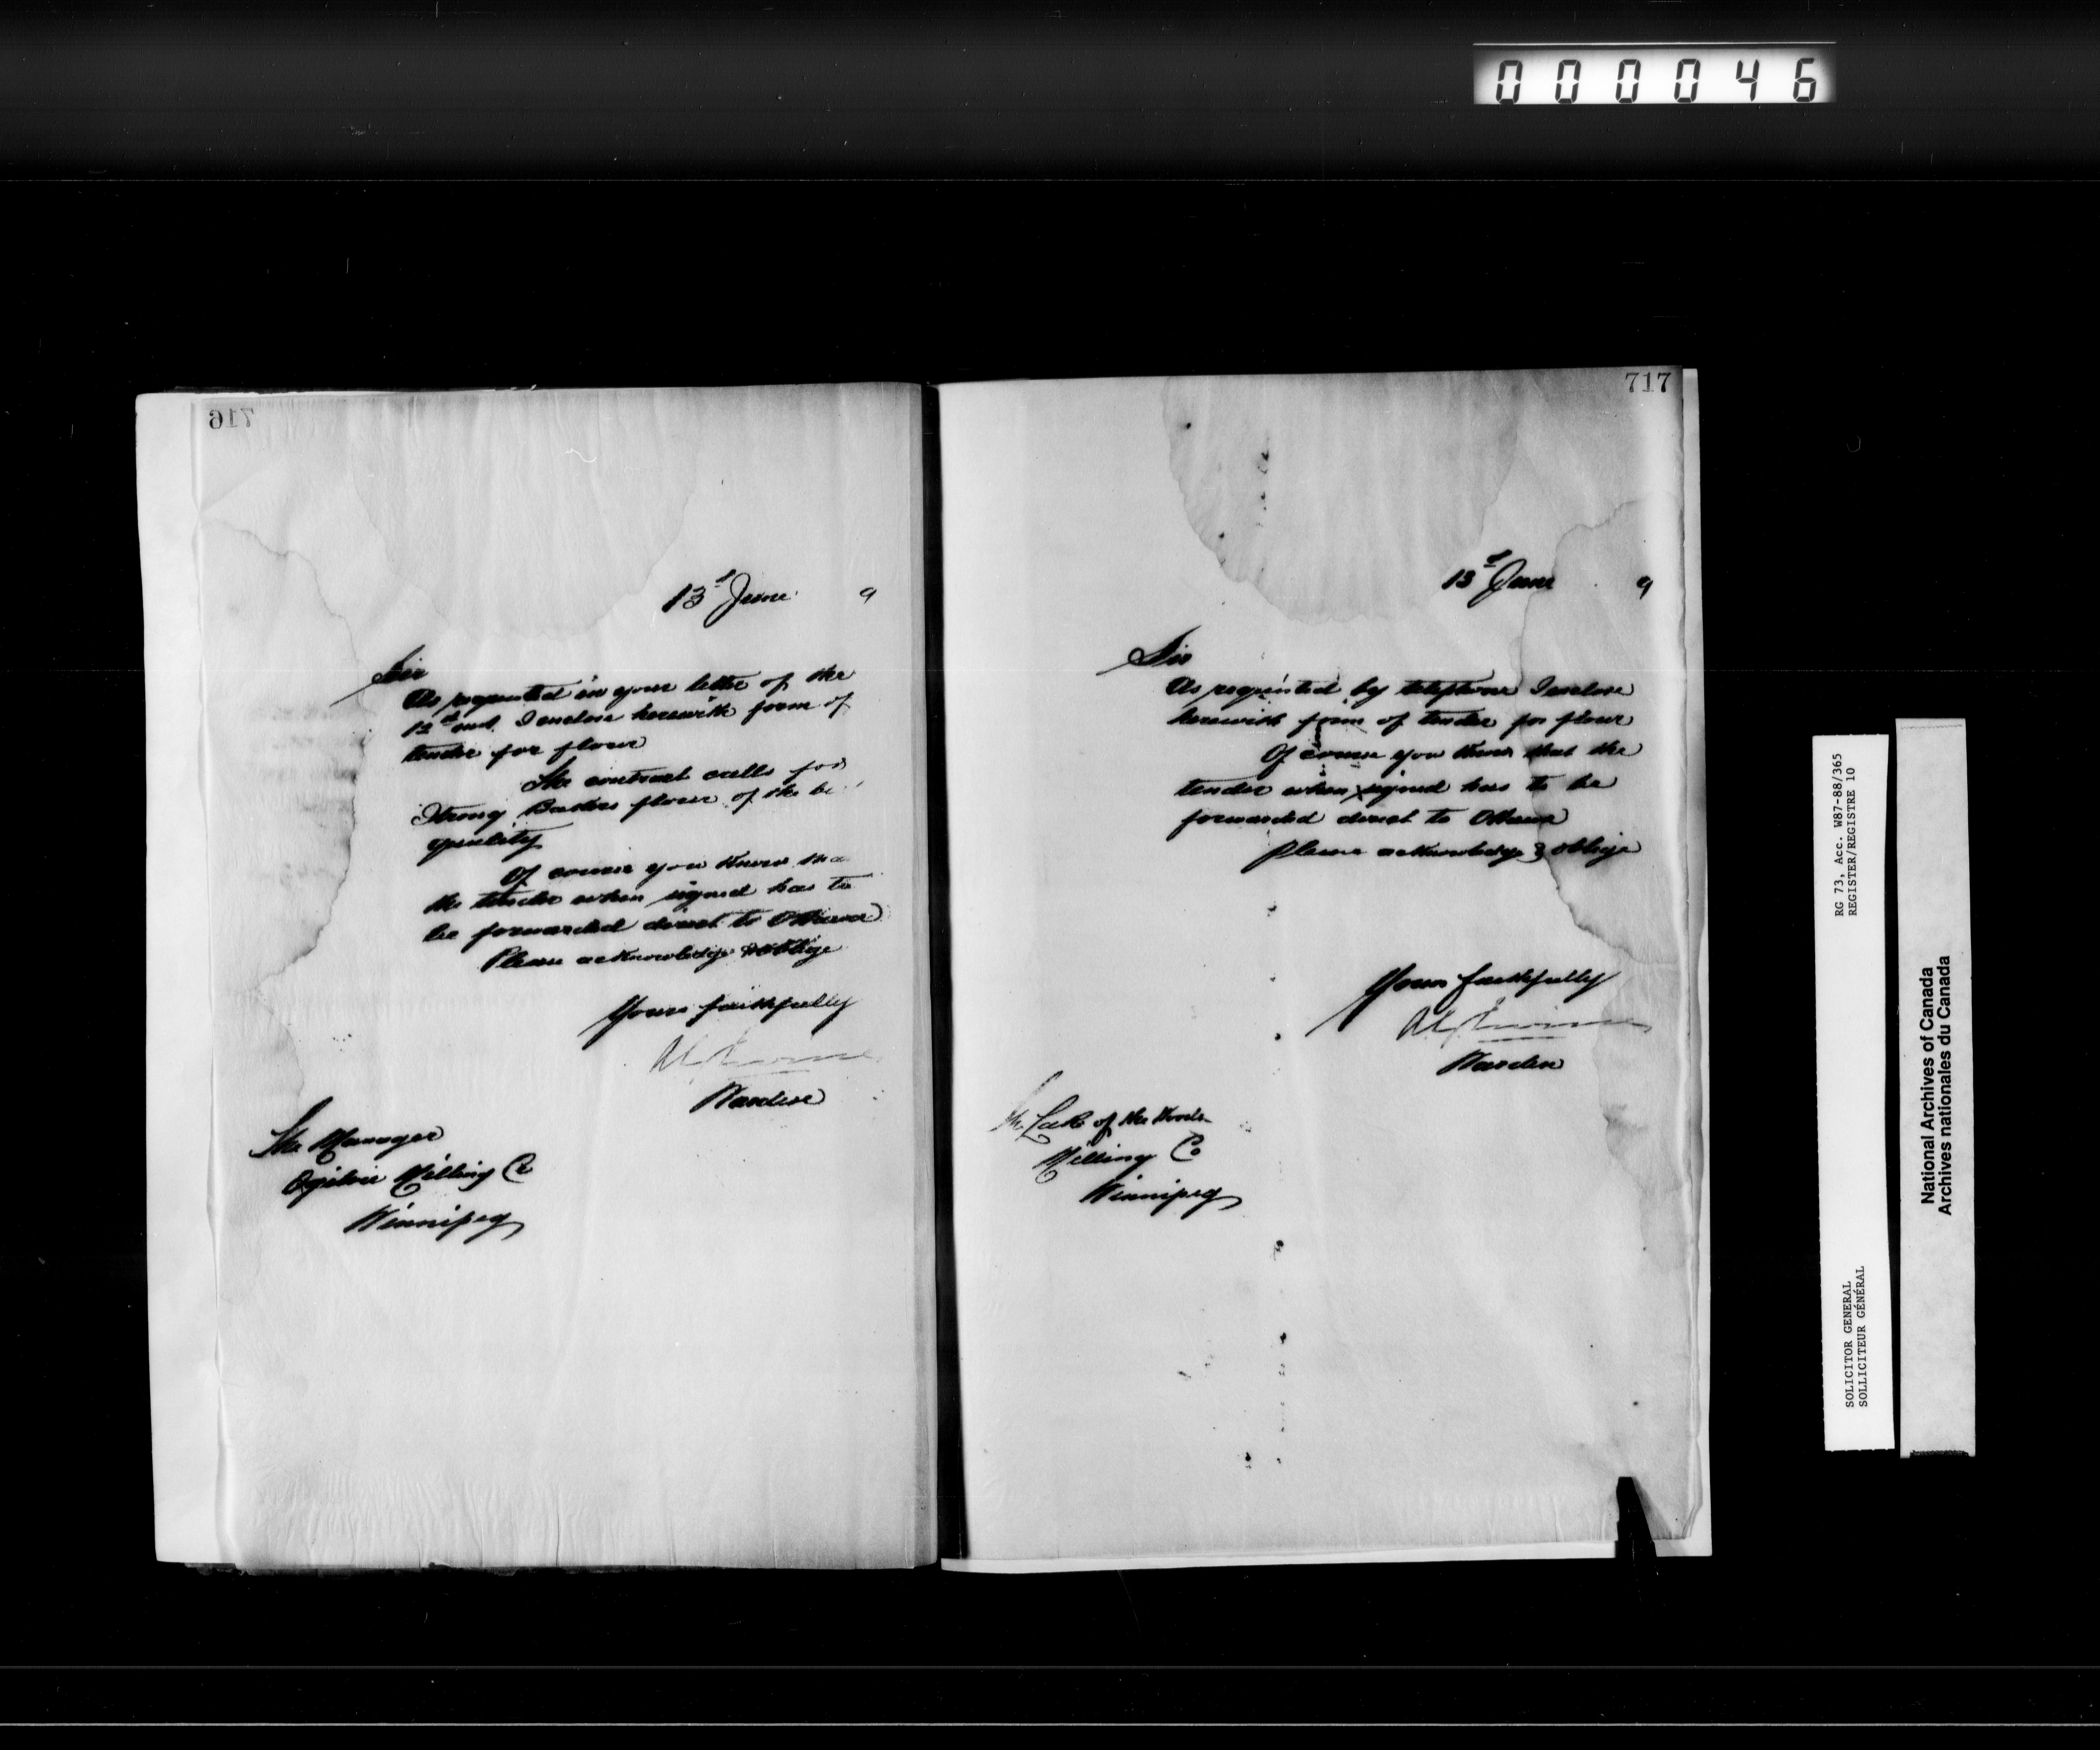 000046
716
13th June 9
Sir
As requested in your letter of the
12th inst. I enclose herewith form of
tender for flour
The contract calls for
Strong Bakers flour of the be
quality
Of course you know tha
the tender when signed has to
be forwarded direct to Ottawa
Please acknowledge & oblige
Yours faithfully
Warden
The Manager
Ogilvie Milling Co
Winnipeg
717
13th June 9
Sir
As requested by telephone I enclose
herewith form of tender for flour
Of course you know that the
tender when signed has to be
forwarded direct to Ottawa
Please acknowledge & oblige
Yours faithfully
Warden
The Lake of the Woods
Milling Co
Winnipeg
RG 73, Acc. W87-88/365
REGISTER/REGISTRE 10
SOLICITOR GENERAL
SOLLICITEUR GÉNÉRAL
National Archives of Canada
Archives nationales du Canada